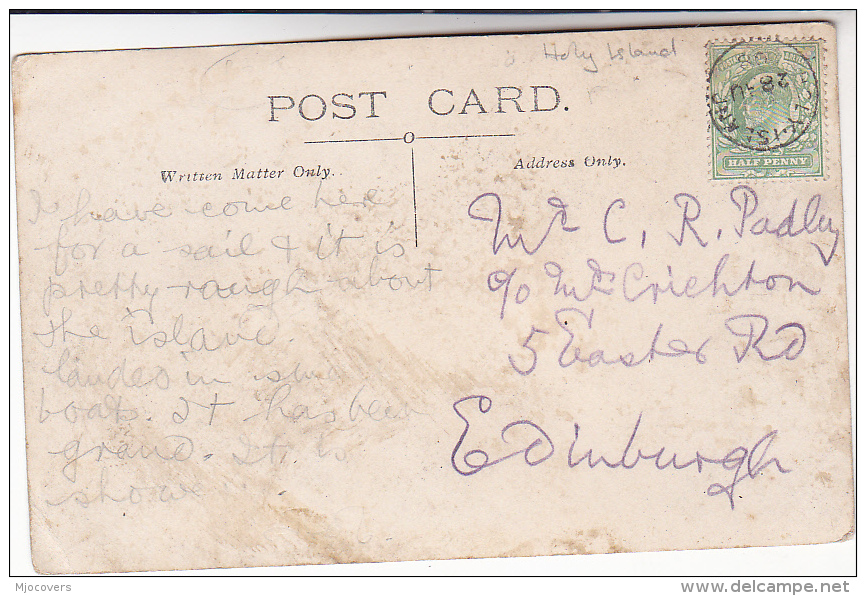 Holy Island
POST CARD.
Written Matter Only.
Address Only.
HALF PENNY
HOLY-ISLAND
28 JU
08
I have come here
for a sail & it is
pretty rough about
the island.
landed in small
boats. It has been
grand. It is
Mr C. R. Padley
c/o Mrs Crichton
5 Easter Rd
Edinburgh
Mjocovers
delcampe.net